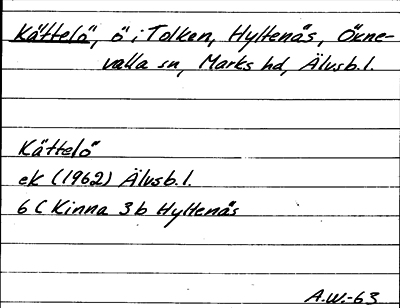 Kättelö, ö i Tolken, Hyltenäs, Öxne-
valla sn, Marks hd, Älvsb. l.
Kättelö
ek (1962) Älvsb. l.
6 C Kinna 3b Hyltenäs
A.W.-63